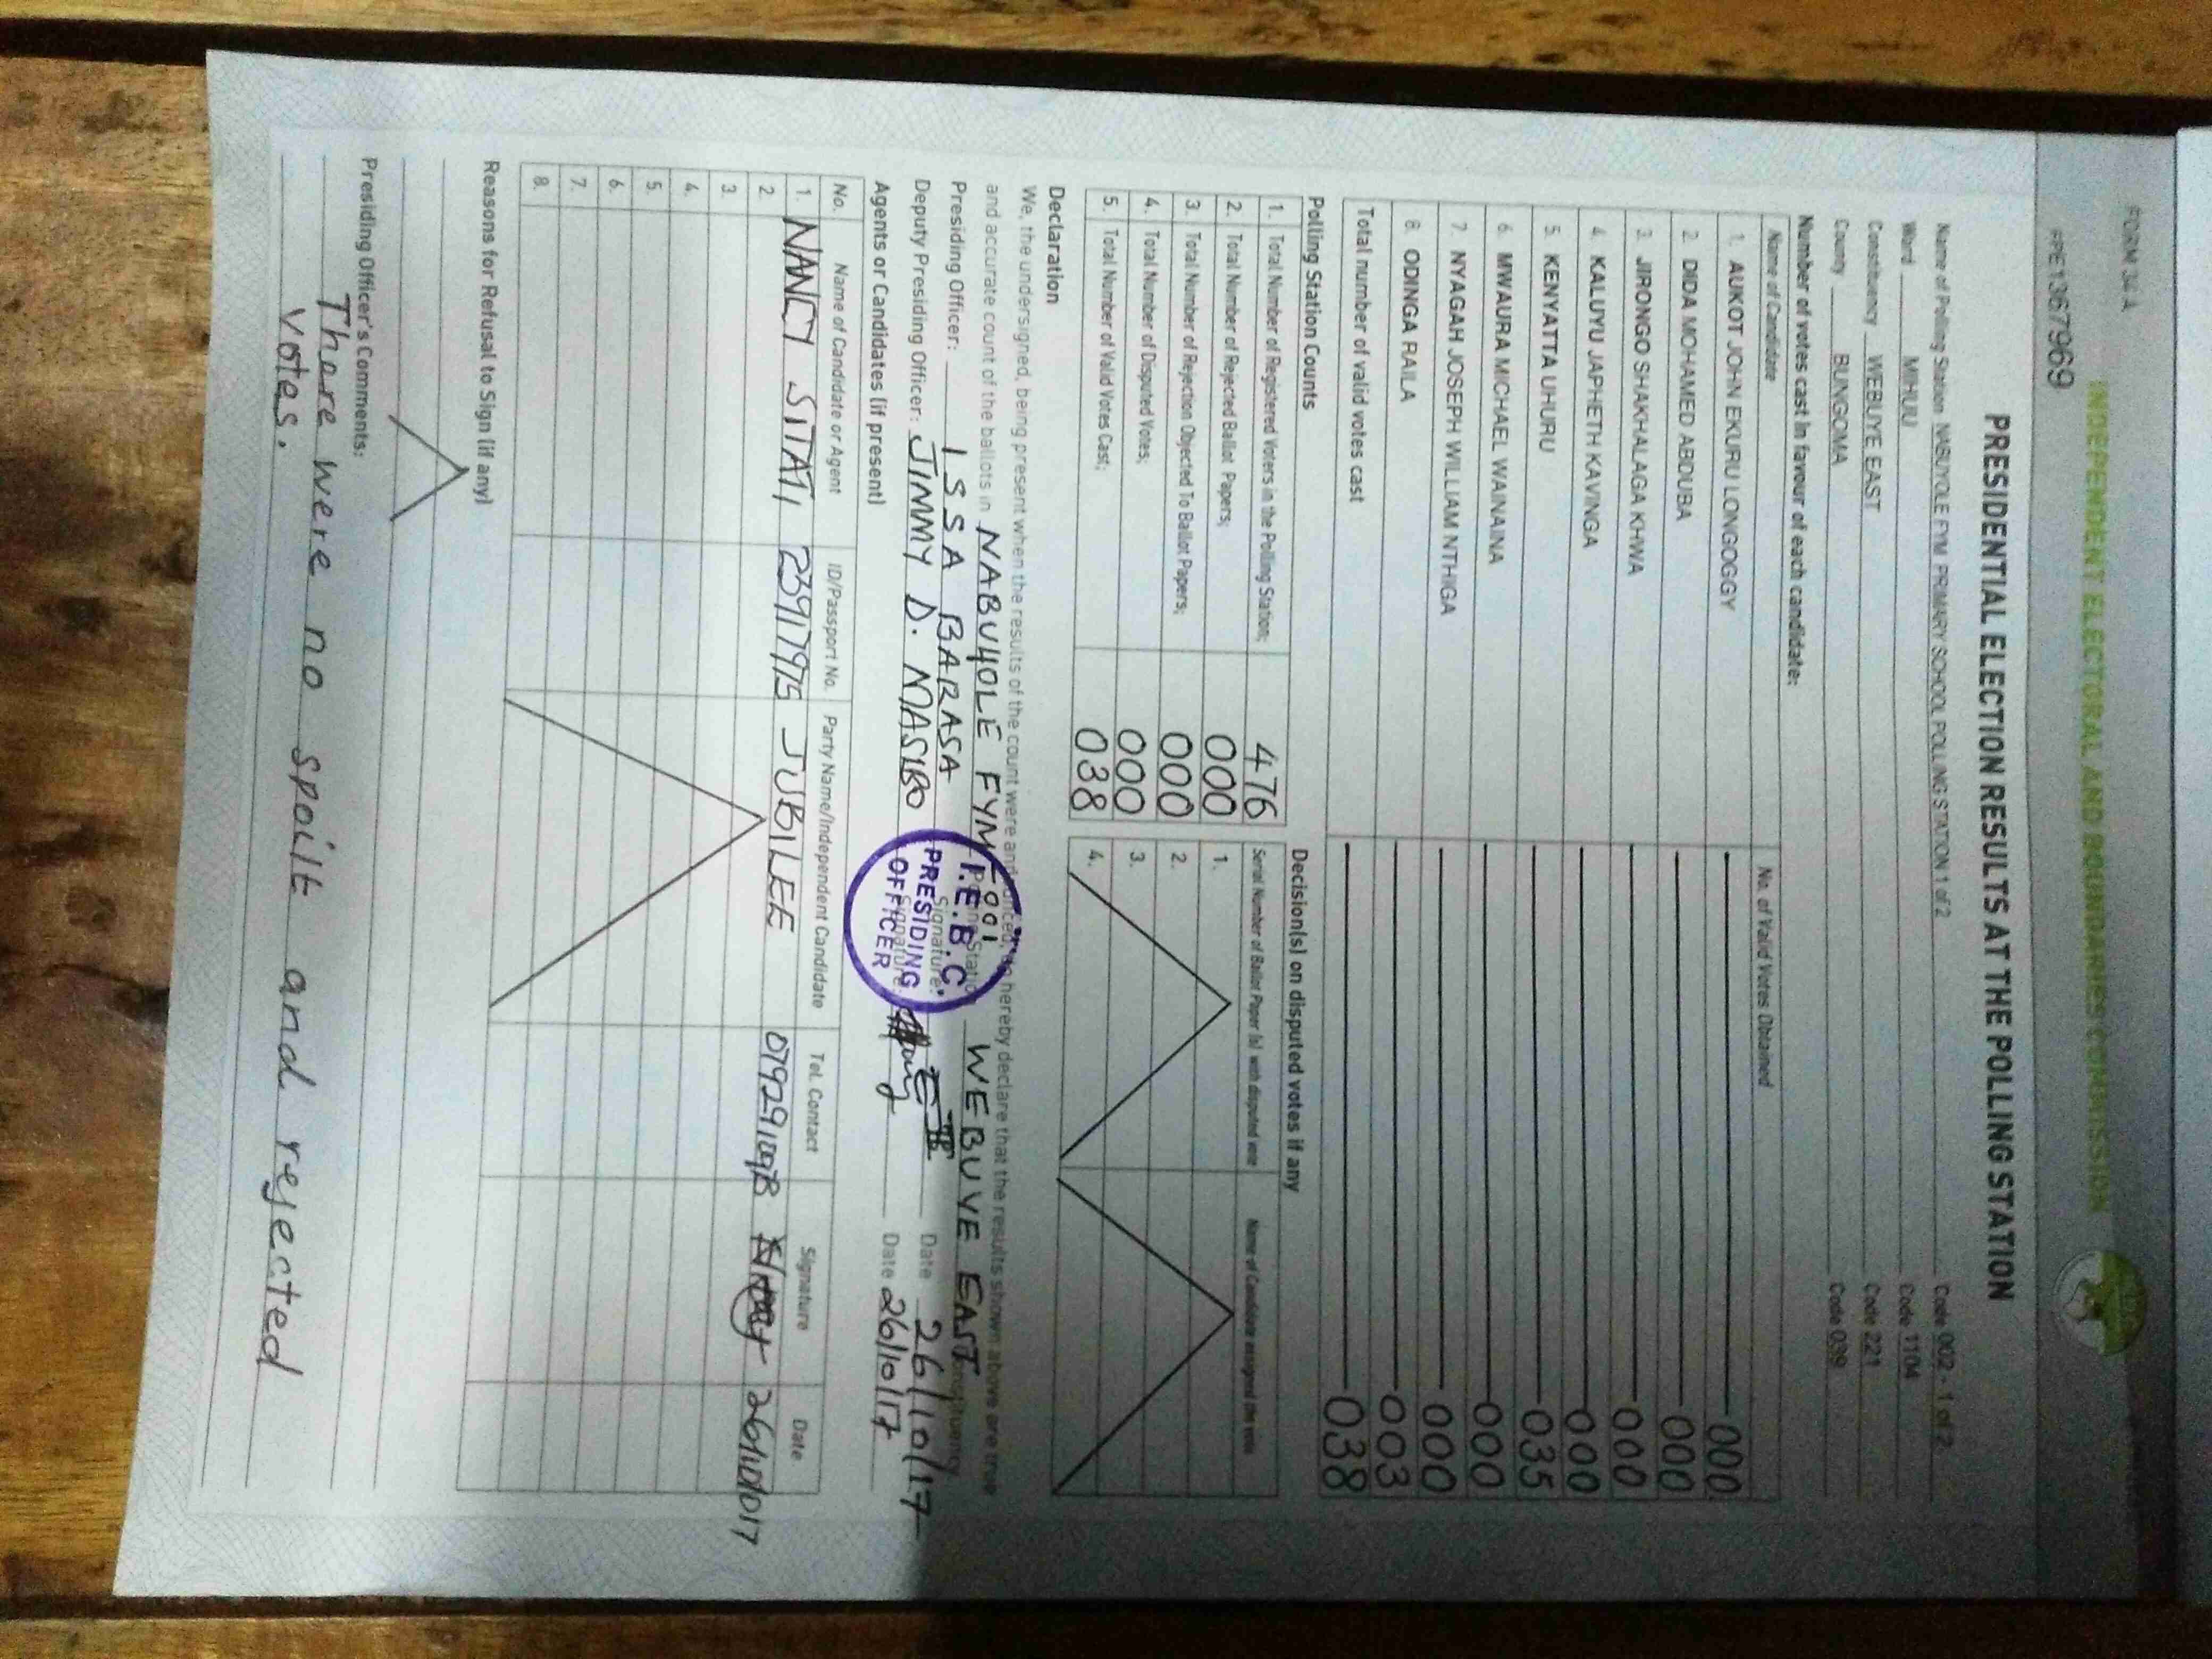 FORM 34 A
INDEPENDENT ELECTORAL AND BOUNDARIES COMMISSION
PPE1367969
PRESIDENTIAL ELECTION RESULTS AT THE POLLING STATION
Name of Polling Station NABUYOLE FYM PRIMARY SCHOOL POLLING STATION 1 of 2 Code 002 - 1 of 2
Ward MIHUU Code 1104
Constituency WEBUYE EAST Code 221
County BUNGOMA Code 039
Number of votes cast in favour of each candidate:
Name of Candidate No. of Valid Votes Obtained
1. AUKOT JOHN EKURU LONGOGGY 000
2. DIDA MOHAMED ABDUBA 000
3. JIRONGO SHAKHALAGA KHWA 000
4. KALUYU JAPHETH KAVINGA 000
5. KENYATTA UHURU 035
6. MWAURA MICHAEL WAINAINA 000
7. NYAGAH JOSEPH WILLIAM NTHIGA 000
8. ODINGA RAILA 003
Total number of valid votes cast 038
Polling Station Counts
1. Total Number of Registered Voters in the Polling Station; 476
2. Total Number of Rejected Ballot Papers; 000
3. Total Number of Rejection Objected To Ballot Papers; 000
4. Total Number of Disputed Votes; 000
5. Total Number of Valid Votes Cast; 038
Decision(s) on disputed votes if any
Serial Number of Ballot Paper (s) with disputed vote Name of Candidate assigned the vote
1.
2.
3.
4.
Declaration
We, the undersigned, being present when the results of the count were announced, do hereby declare that the results shown above are true
and accurate count of the ballots in NABUYOLE FYM 001 Polling Station WEBUYE EAST Constituency
Presiding Officer: ISSA BARASA Signature: Date 26/10/17
Deputy Presiding Officer: JIMMY D. MASIBO Signature: Date 26/10/17
I.E.B.C.
PRESIDING
OFFICER
Agents or Candidates (if present)
No. Name of Candidate or Agent ID/Passport No. Party Name/Independent Candidate Tel. Contact Signature Date
1. NANCY SITATI 23917975 JUBILEE
2.
3.
4.
5.
6.
7.
8.
Reasons for Refusal to Sign (if any)
Presiding Officer's Comments:
There were no spoilt and rejected
votes.